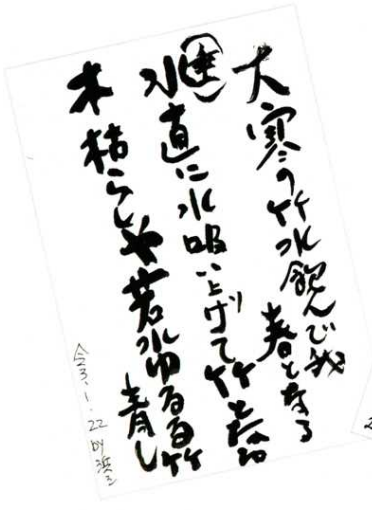 大寒の竹水飲んで我
春となる
垂
直に水吸い上げて竹と
木枯らしや若水ゆるる竹
青し
令3.1.22 by